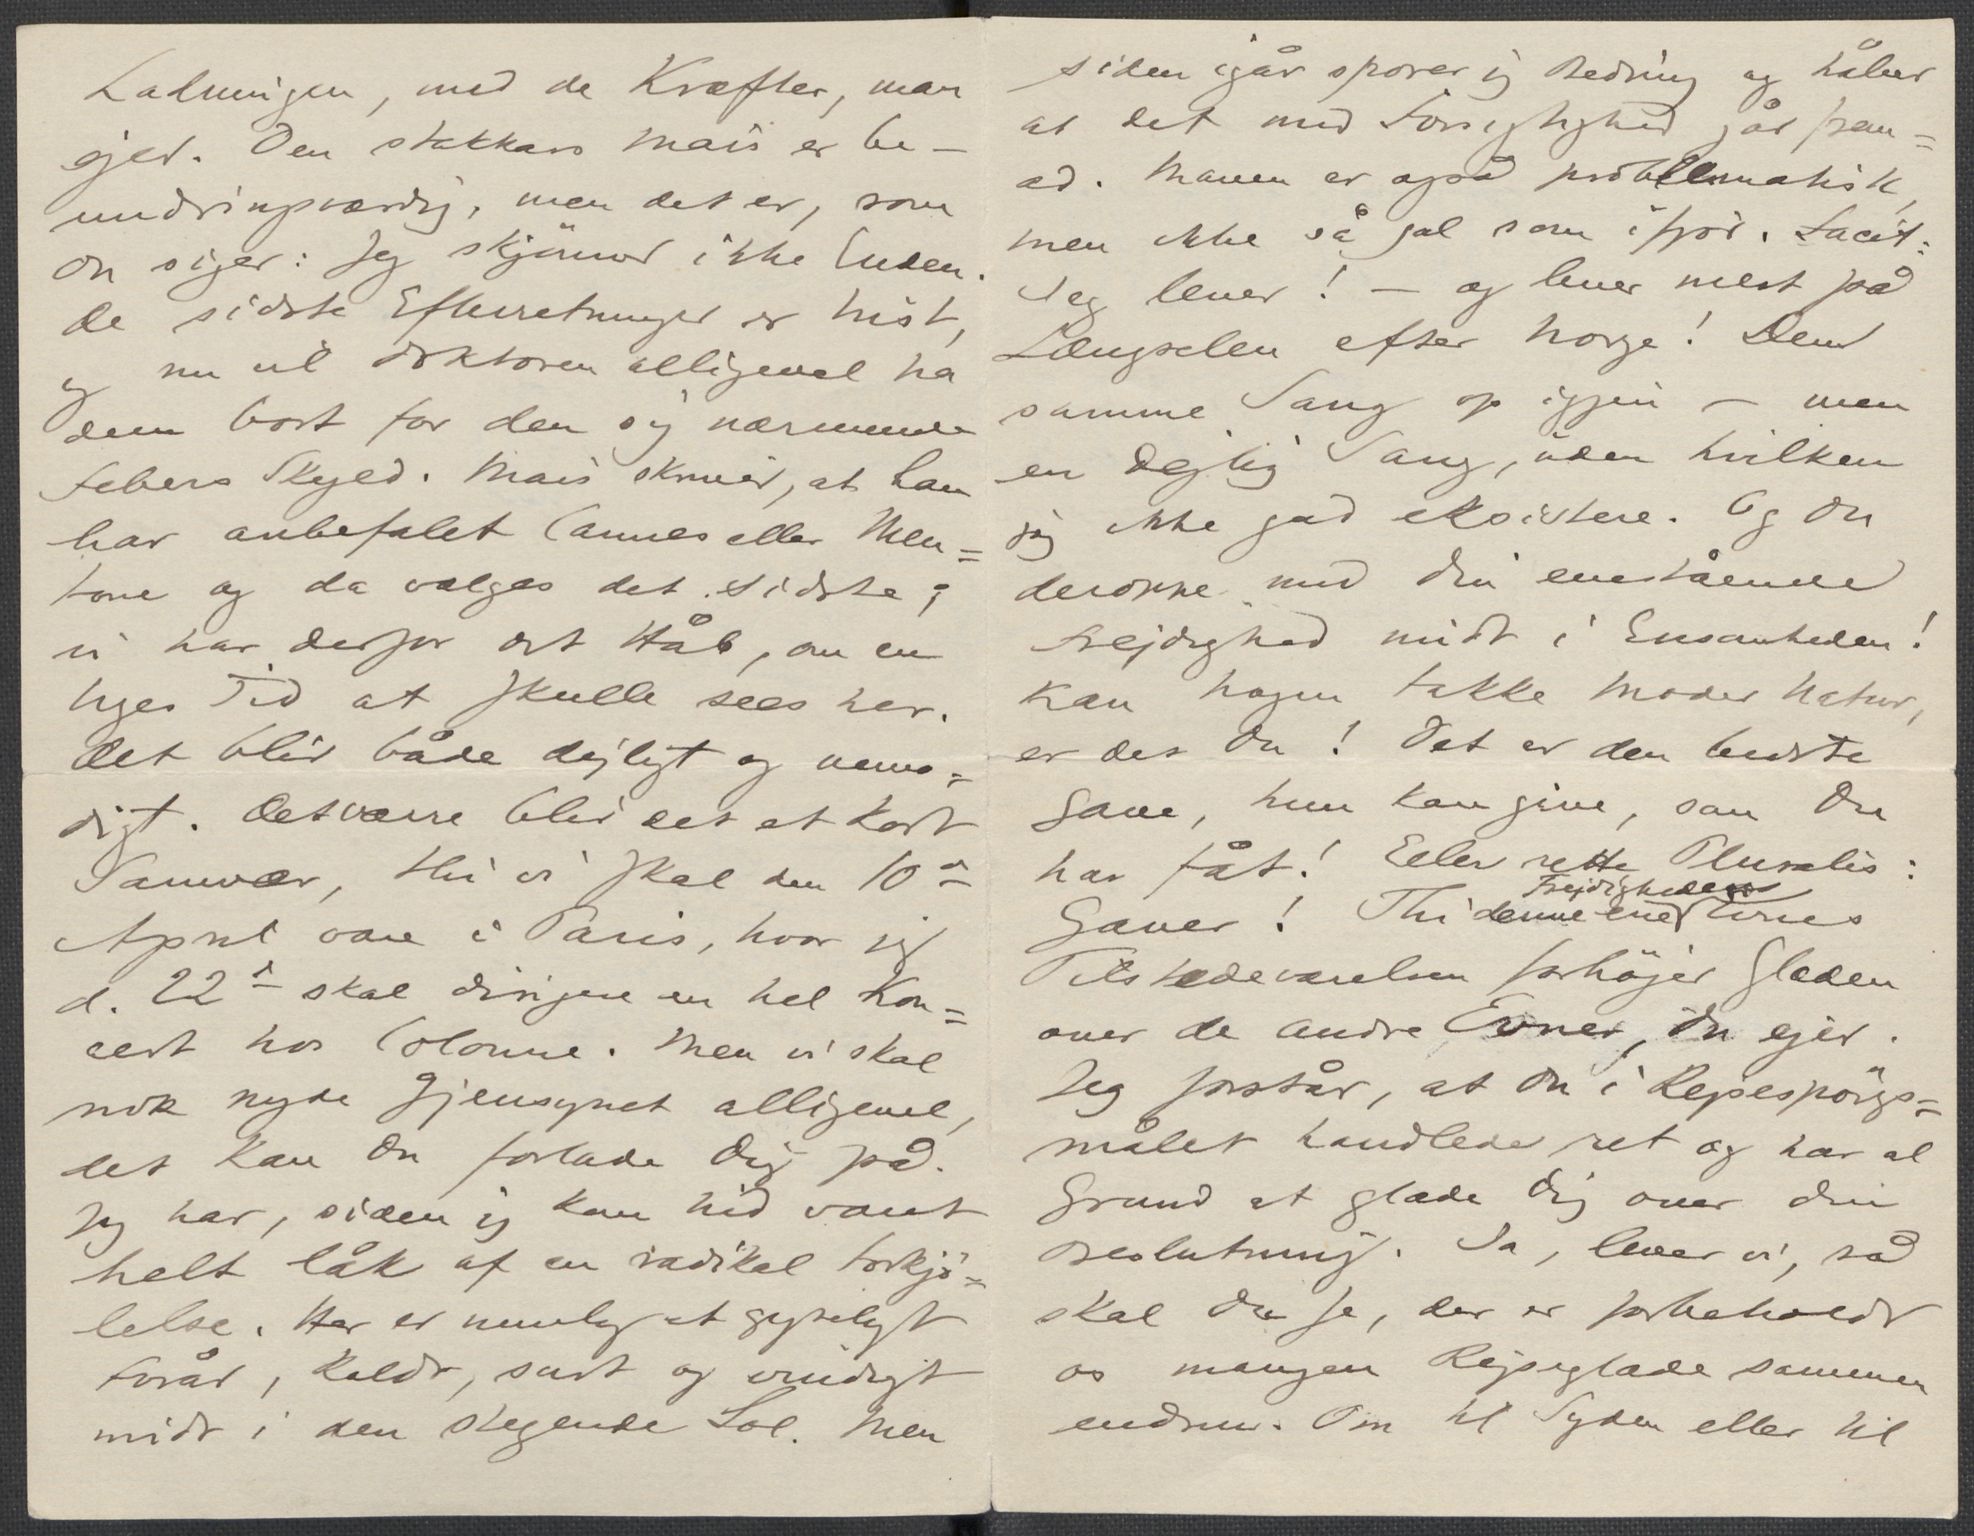 Ladningen, med de Kræfter, man
ejer. Den stakkars Mais er be-
undringsværdig, men det er, som
Du siger: Jeg skjönner ikke Enden.
De sidste Efterretninger er trist,
og nu vil Doktoren alligevel ha
dem bort for den sig nærmende
Febers Skyld. Mais skriver, at han
har anbefalet Cannes eller Men=
tone og da vælges det sidste;
vi har derfor det Håb, om en
Uges Tid at skulle sees her.
Det blir både dejligt og vemo=
digt. Desværre blir det et kort
Samvær, thi vi skal den 10de
April være i Paris, hvor jeg
d. 22de skal dirigere en hel Kon=
cert hos Colonne. Men vi skal
nok nyde Gjensynet alligevel,
det kan Du forlade Dig på.
Jeg har, siden jeg kom hid været
helt låk af en radikal Forkjö=
lelse. Her er nemlig et gyseligt
Forår, koldt, surt og vindigt
midt i den stegende Sol. Men
siden igår sporer jeg Bedring og håber
at det med Forsigtighed går frem=
ad. Maven er også problematisk,
men ikke så gal som ifjor. Facit:
Jeg lever! – og lever mest på
Længselen efter Norge! Den
samme Sang op igjen – men
en dejlig Sang, uden hvilken
jeg ikke gad eksistere. Og Du
deroppe med din enestående
Frejdighed midt i Ensomheden!
Kan nogen takke Moder Natur,
er det Du! Det er den bedste
Gave, hun kan give, som Du
har fåt! Eller rette Pluralis:
Gaver! Thi denne ene Frejdighedens Evnes
Tilstedeværelsen forhöjer Glæden
over de andre Evner, Du ejer.
Jeg forstår, at Du i Rejsespörgs=
målet handlede ret og har al
Grund at glæde Dig over din
Beslutning. Ja, lever vi, så
skal Du se, der er forbeholdt
os mangen Rejseglæde sammen
endnu. Om til Syden eller til